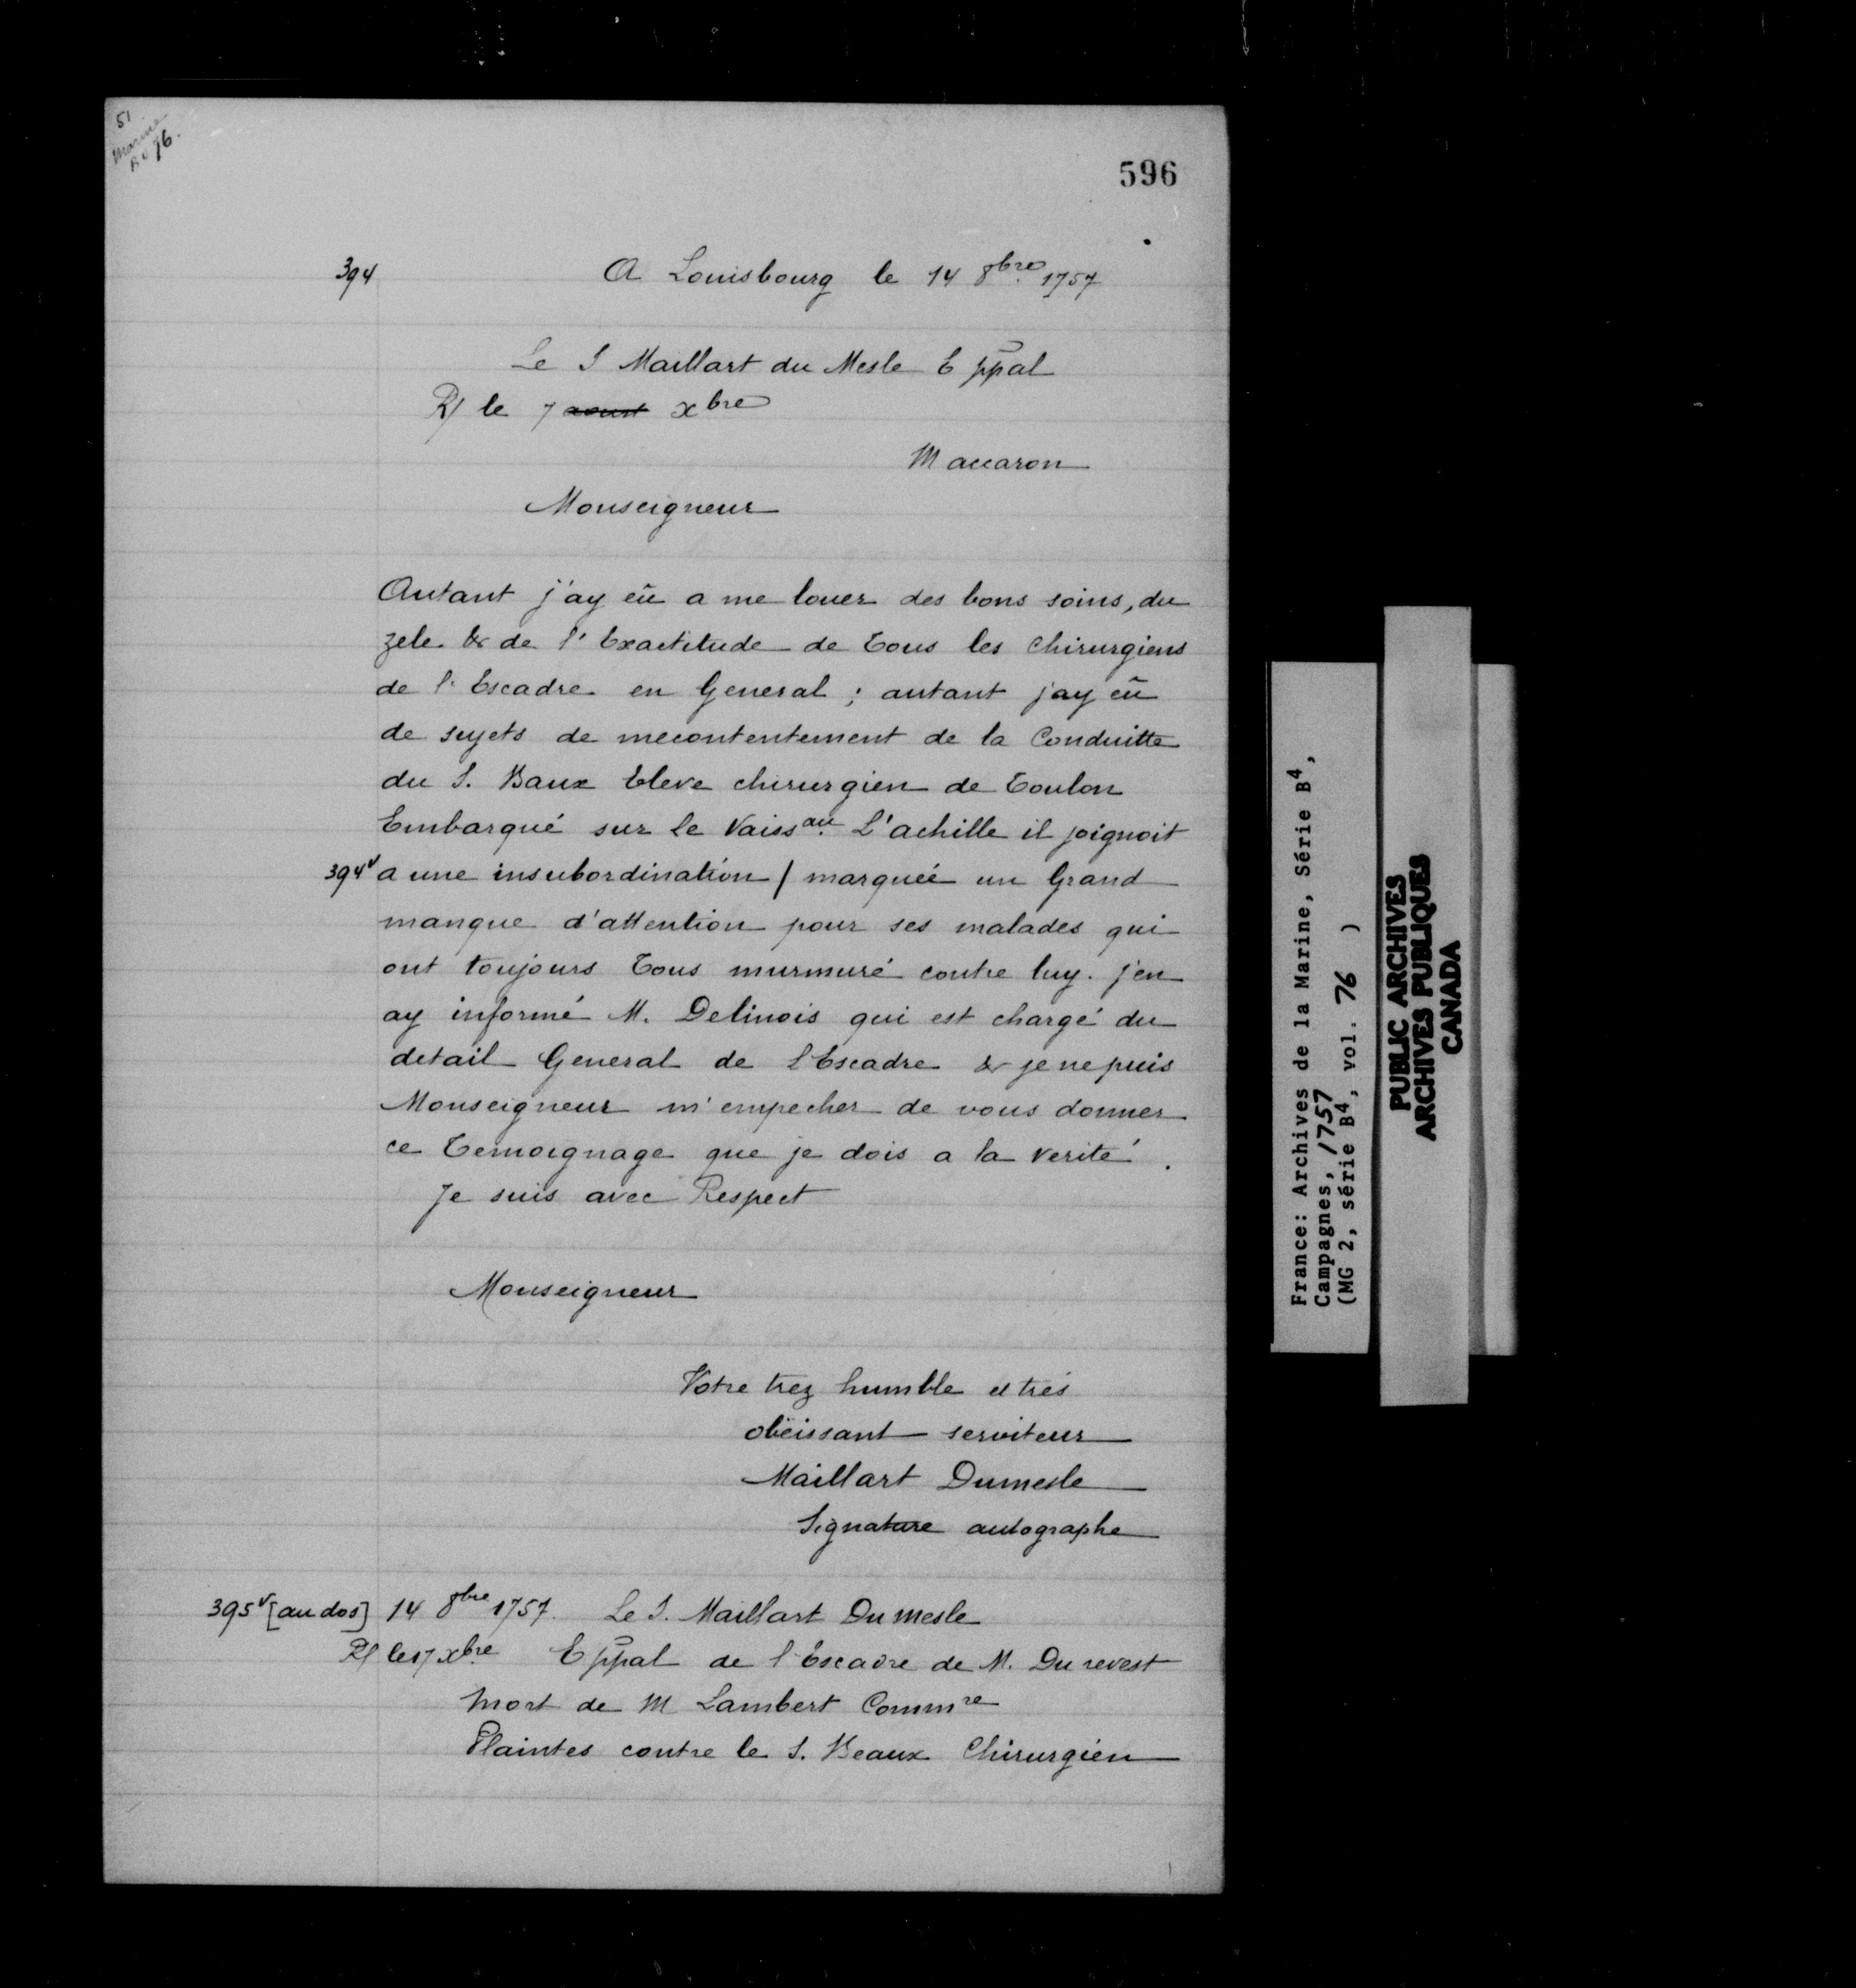 51
Marine
B4 76.
596
394 A Louisbourg le 14 8bre. 1757
Le S Maillart du Mesle E ppal
R/ le 7 aoust xbre
Maccaron
Monseigneur
Autant j'ay eû a me louer des bons soins, du
zele & de l'Exactitude de Tous les Chirurgiens
de l'Escadre en General ; autant jay eû
de sujets de mecontentement de la Conduitte
du S. Baux Eleve chirurgien de Toulon
Embarqué sur le Vaissau. L'achille il joignoit
394v a une insubordination / marquée un Grand
manque d'attention pour ses malades qui
ont toujours Tous murmuré contre luy. j'en
ay informé M. Delinois qui est chargé du
detail General de l'Escadre & je ne puis
Monseigneur m'empecher de vous donner
ce Temoignage que je dois a la verité.
Je suis avec Respect
Monseigneur
Votre trez humble et trés
obëissant serviteur
Maillart Dumesle
Signature autographe
395v [au dos] 14 8bre 1757. Le S. Maillart Dumesle
R/ le 17 xbre. E ppal de l'Escadre de M. Du revest
Mort de M Lambert Commre
Plaintes contre le S. Beaux Chirurgien
France: Archives de la Marine, Série B4,
Campagnes, 1757
(MG 2, série B4, vol. 76 )
PUBLIC ARCHIVES
ARCHIVES PUBLIQUES
CANADA